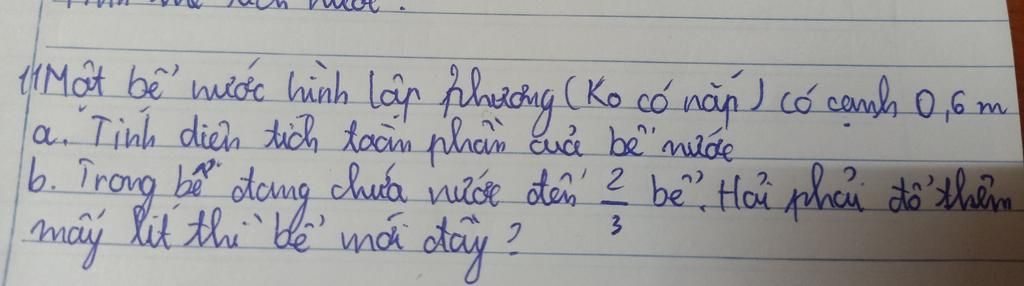 11 Một bể nước hình lập phương (Ko có nắp) có cạnh 0,6 m
a. Tính diện tích toàn phần của bể nước
b. Trong bể đang chứa nước đến 2/3 bể. Hỏi phải đổ thêm
mấy lít thì bể mới đầy?